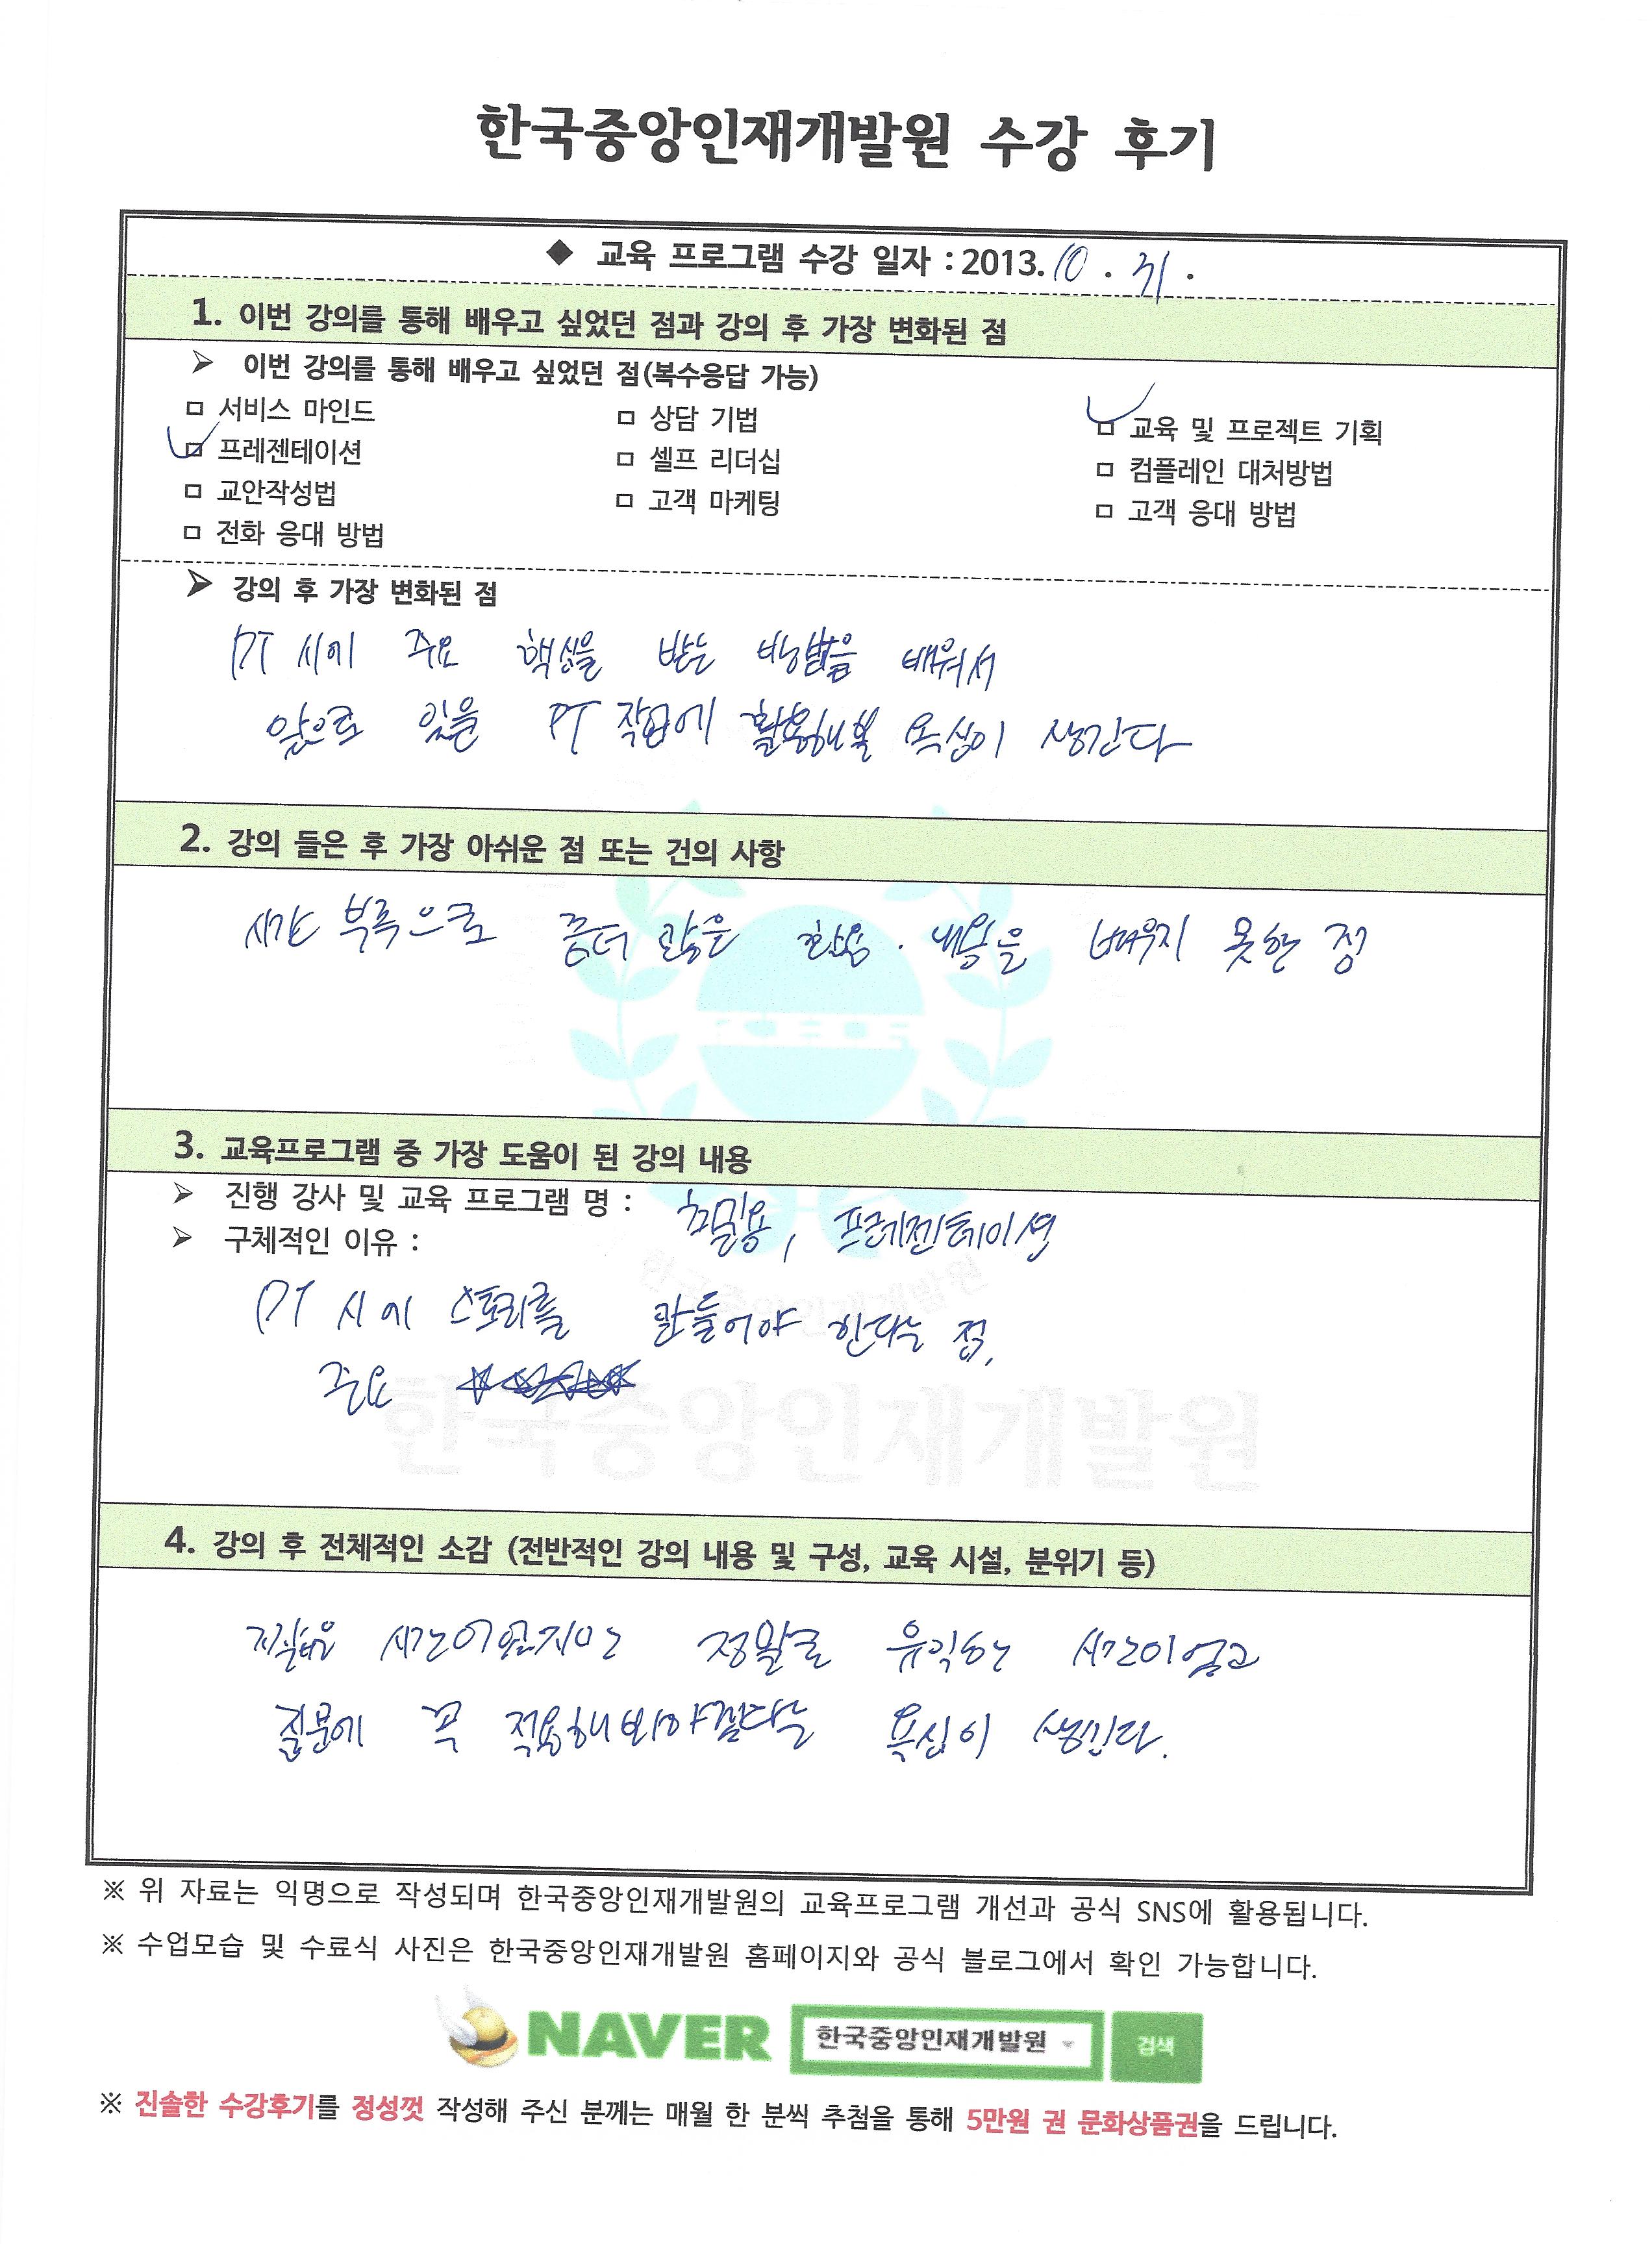 한국중앙인재개발원 수강 후기
◆ 교육 프로그램 수강 일자 : 2013. 10 . 31 .
1. 이번 강의를 통해 배우고 싶었던 점과 강의 후 가장 변화된 점
➢ 이번 강의를 통해 배우고 싶었던 점(복수응답 가능)
□ 서비스 마인드 □ 상담 기법 □ 교육 및 프로젝트 기획
□ 프레젠테이션 □ 셀프 리더십 □ 컴플레인 대처방법
□ 교안작성법 □ 고객 마케팅 □ 고객 응대 방법
□ 전화 응대 방법
➢ 강의 후 가장 변화된 점
PT 시에 주요 핵심을 방법을 배워서
앞으로 있을 PT 작업에 활용해볼 욕심이 생긴다
2. 강의 들은 후 가장 아쉬운 점 또는 건의 사항
시간 부족으로 좀더 많은 활용. 내용을 배우지 못한 점
3. 교육프로그램 중 가장 도움이 된 강의 내용
➢ 진행 강사 및 교육 프로그램 명 : 프레젠테이션
➢ 구체적인 이유 :
PT 시에 스토리를 만들어야 한다는 점,
주요
한국중앙인재개발원
한국중앙인재개발원
4. 강의 후 전체적인 소감 (전반적인 강의 내용 및 구성, 교육 시설, 분위기 등)
짧은 시간이었지만 정말로 유익한 시간이었고
꼭 적용해봐야겠다는 욕심이 생긴다.
※ 위 자료는 익명으로 작성되며 한국중앙인재개발원의 교육프로그램 개선과 공식 SNS에 활용됩니다.
※ 수업모습 및 수료식 사진은 한국중앙인재개발원 홈페이지와 공식 블로그에서 확인 가능합니다.
NAVER 한국중앙인재개발원 검색
※ 진솔한 수강후기를 정성껏 작성해 주신 분께는 매월 한 분씩 추첨을 통해 5만원 권 문화상품권을 드립니다.